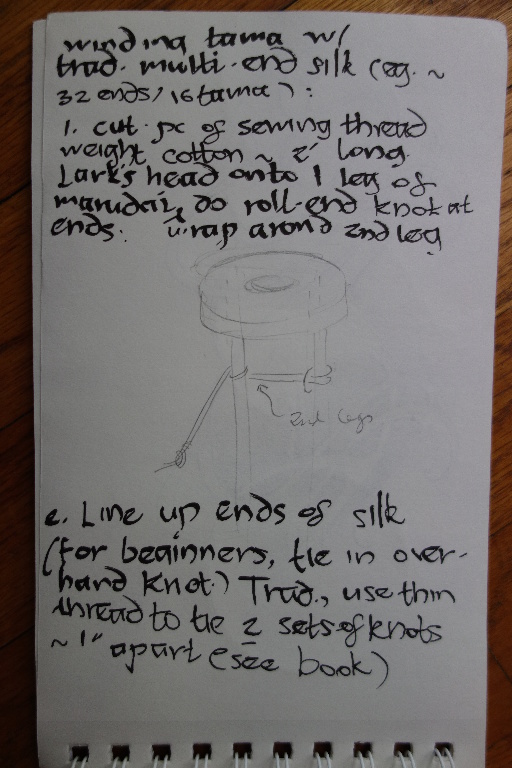 winding tama w/
trad. multi-end silk (eg. ~
32 ends/16 tama):
1. cut pc of sewing thread
weight cotton ~ 2' long.
Lark's head onto 1 leg of
marudai, do roll-end knot at
ends. wrap arond 2nd leg
2nd leg
2. Line up ends of silk
(for beginners, tie in over-
hand knot.) Trad., use thin
thread to tie 2 sets of knots
~ 1" apart (see book)